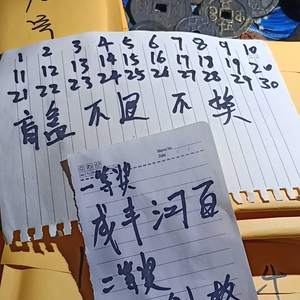 号
1 2 3 4 5 6 7 8 9 10
11 12 13 14 15 16 17 18 19 20
21 22 23 24 25 26 27 28 29 30
盲盒 不退 不换
一等奖
咸丰河百
二等奖
4